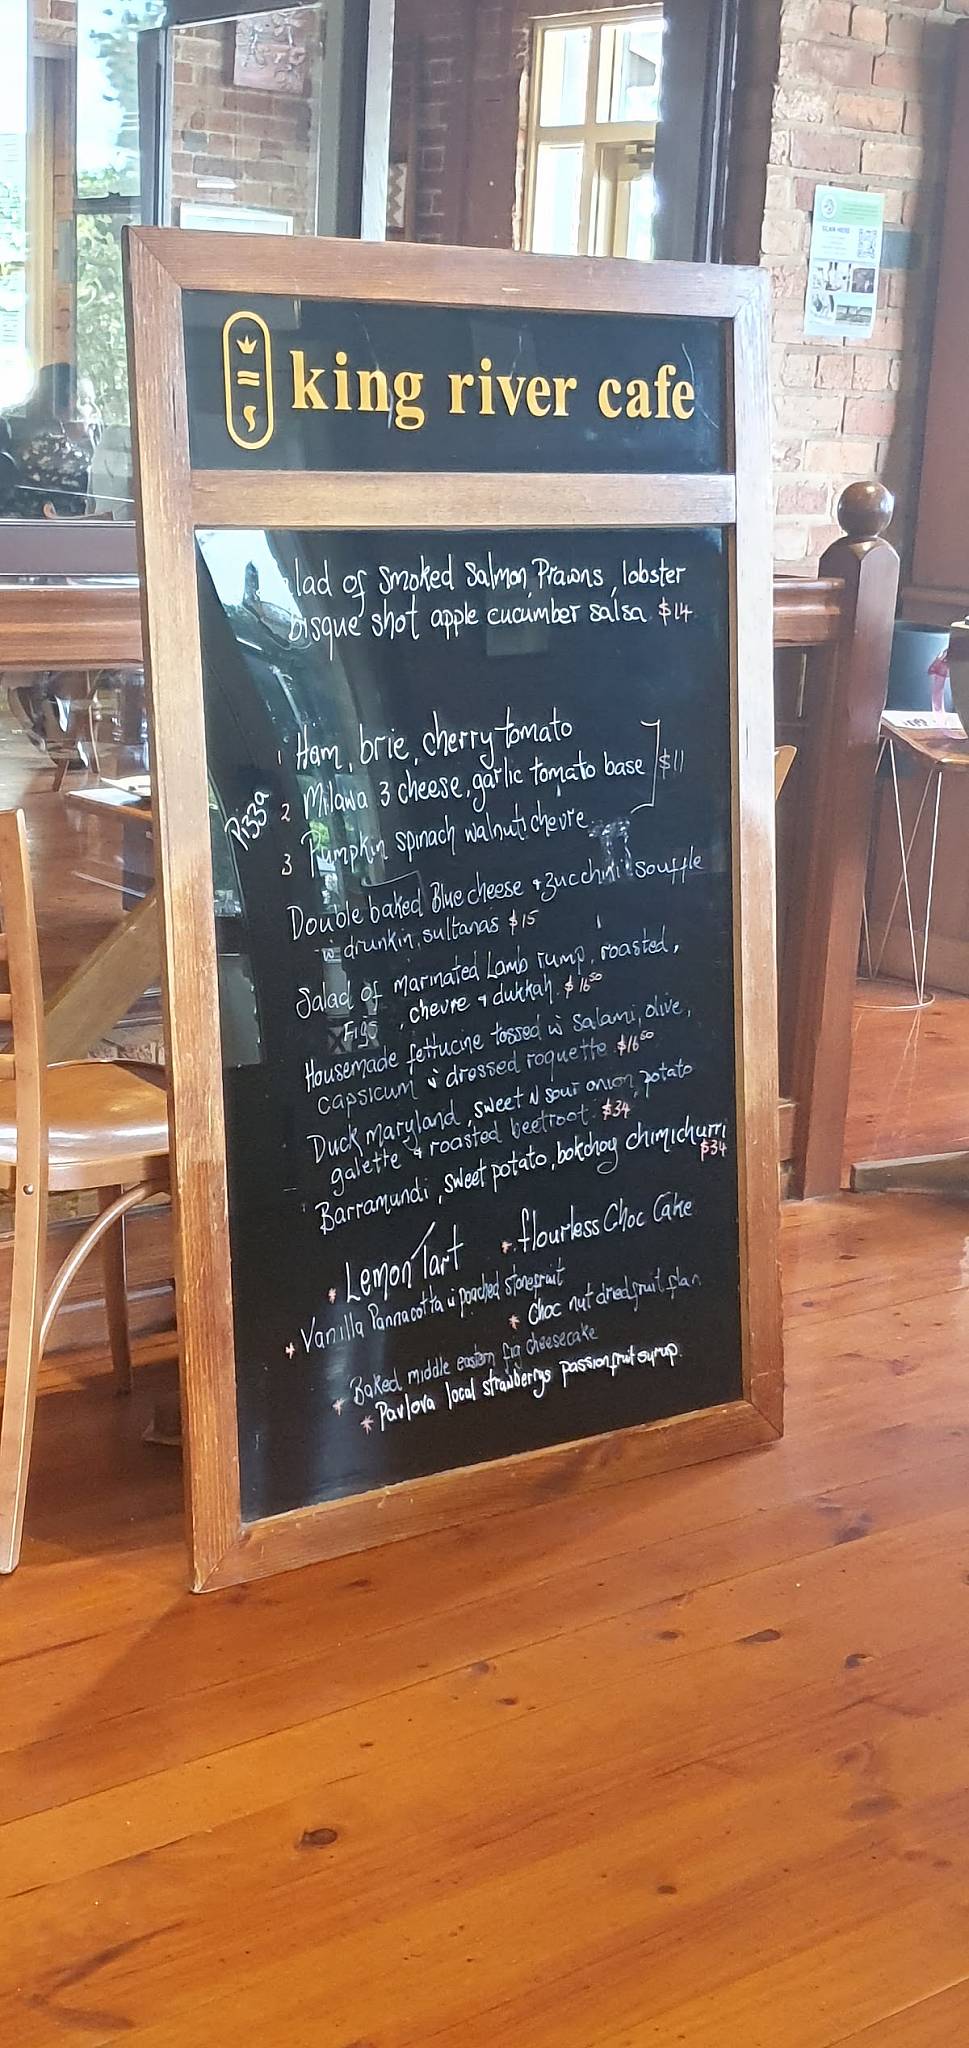 king river cafe
lad of Smoked Salmon, Prawns, lobster
bisque shot apple cucumber salsa $14
Pizza
1 Ham, brie, cherry tomato
2 Milawa 3 cheese, garlic tomato base $11
3 Pumpkin spinach walnut, chevre
Double baked Blue cheese + zucchini souffle
w drunkin, sultanas $15
Salad of marinated Lamb rump, roasted,
Figs, chevre + dukkah. $16.50
Housemade fettucine tossed w Salami, olive,
capsicum w dressed roquette $16.50
Duck maryland, sweet N sour onion, potato
galette + roasted beetroot. $34
Barramundi, sweet potato, bokchoy chimichurri
$34
* Lemon Tart * flourless Choc Cake
* Vanilla Pannacotta w poached stonefruit
* Choc nut dried fruit flan
* Baked middle eastern fig cheesecake
* Pavlova local strawberrys passionfruit syrup.
SCAN HERE